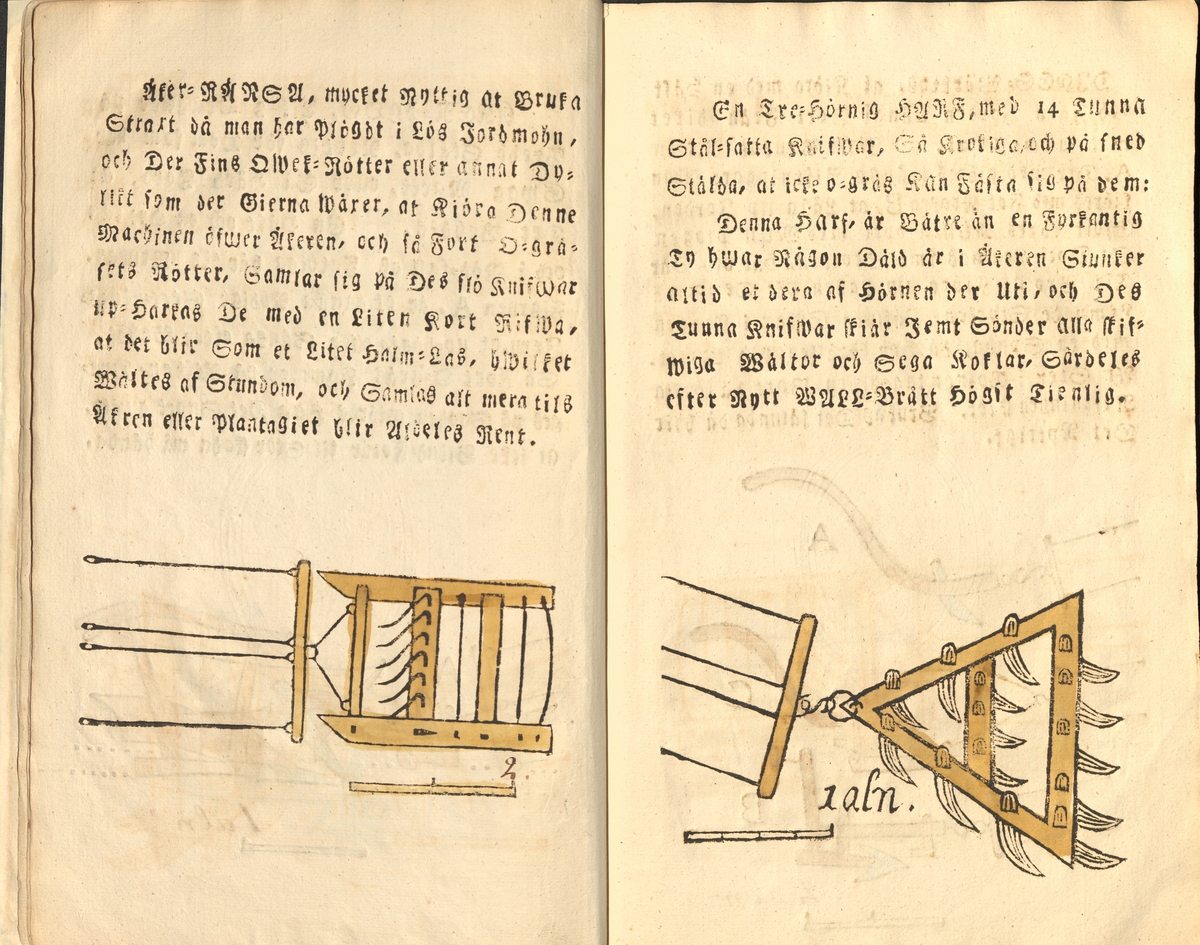 Åker=RÄNSA, mycket Nyttig at Bruka
Straxt då man har Plögdt i Lös Jordmohn,
och Der Fins Qwek=Rötter eller annat Dy=
likt som der Gierna Wäxer, at Kiöra Denne
Machinen öfwer Åkeren, och så Fort O=grä=
sets Rötter, Samlar sig på Des slö Knifwar
up=Harkas De med en Liten Kort Rifwa,
at det blir Som et Litet Halm=Las, hwilket
Wältes af Stundom, och Samlas alt mera tils
Åkren eller Plantagiet blir Aldeles Rent.
2.
En Tre=Hörnig HARF, med 14 Tunna
Stål=satta Knifwar, Så Krokiga, och på sned
Stålda, at icke o=gräs Kan Fästa sig på dem:
Denna Harf, är Bätre än en Fyrkantig
Ty hwar Någon Däld är i Åkeren Siunker
altid et dera af Hörnen der Uti, och Des
Tunna Knifwar skiär Jemt Sönder alla skif=
wiga Wältor och Sega Koklar, Särdeles
efter Nytt WALL=Brått Högst Tienlig.
1 aln.